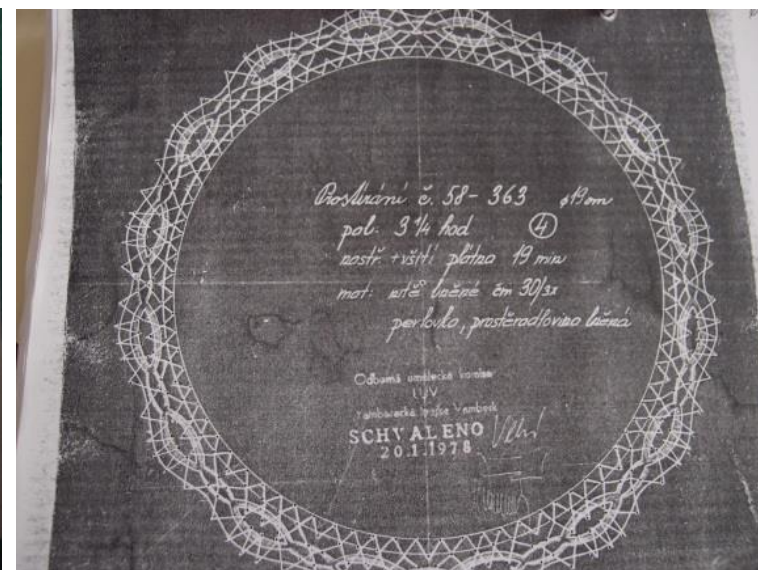 Prostírání č. 58-363 ø19cm
pol. 3¼ hod ④
nastř. + všití plátna 19 min
mat: nitě lněné čm 30/3x
perlovka, prostěradlovina lněná
Odborná umělecká komise
Vamberk
SCHVALENO
20.1.1978